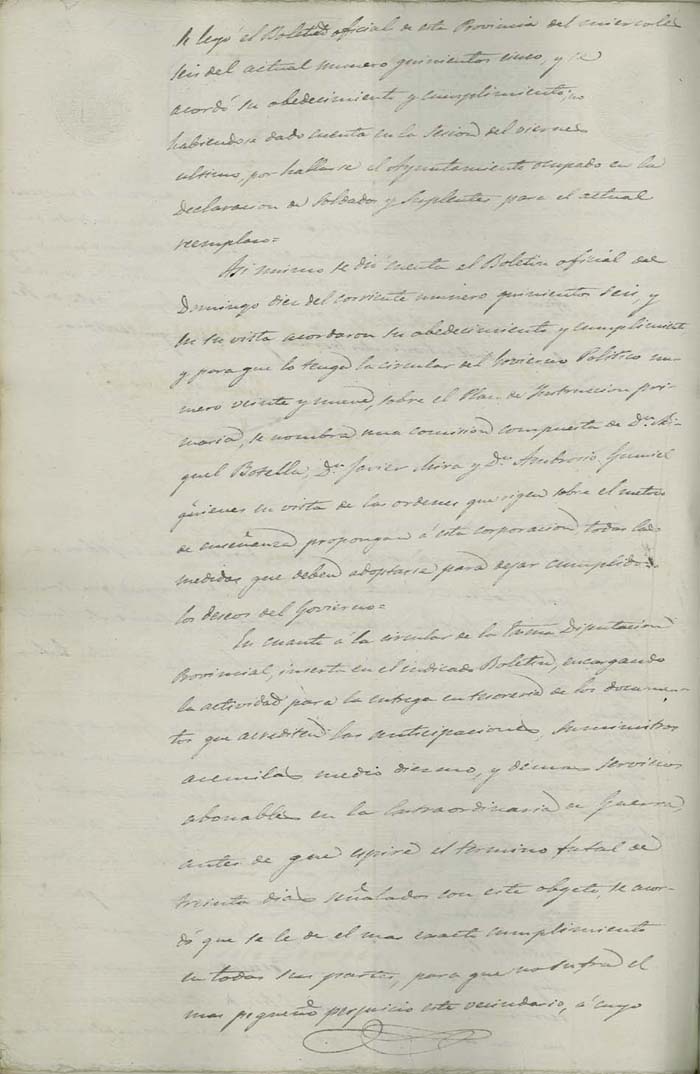 se leyó el Boletin oficial de esta Provincia del miercoles
seis del actual numero quinientos cinco, y se
acordó su obedecimiento y cumplimiento; no
habiendose dado cuenta en la sesion del viernes
ultimo por hallarse el Ayuntamiento ocupado en la
declaracion de Soldados y Suplentes para el actual
reemplazo=
Asi mismo se dió cuenta el Boletin oficial del
Domingo diez del corriente numero quinientos seis, y
en su vista acordaron su obedecimiento y cumplimiento
y para que lo tenga la circular del Govierno Politico nu-
mero veinte y nueve, sobre el Plan de Instruccion pri-
maria, se nombra una comision compuesta de Dn. Mi-
guel Botella, Dn. Javier Mira y Dn. Ambrosio Gumiel
quienes en vista de las ordenes que rigen sobre el metodo
de enseñanza propongan á esta corporacion, todas las
medidas que deben adoptarse para dejar cumplidos
los deseos del Govierno=
En cuanto á la circular de la Exma Diputacion
Provincial, inserta en el indicado Boletin, encargando
la actividad para la entrega en tesoreria de los documen-
tos que acrediten las anticipaciones, suministros
acemilas medio diezmo, y demas servicios
abonables en la Extraordinaria de Guerra,
antes de que espire el termino fatal de
treinta dias señalados con este objeto, se acor-
dó que se le de el mas exacto cumplimiento
en todas sus partes, para que no sufra el
mas pequeño perjuicio este vecindario, á cuyo